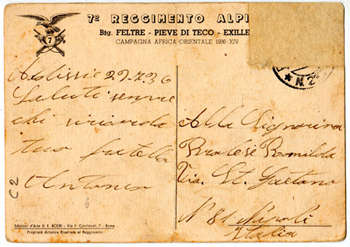 7° REGGIMENTO ALPI
Btg. FELTRE - PIEVE DI TECO - EXILLE
CAMPAGNA AFRICA ORIENTALE 1936-XIV
7
N. 2
29.7.36
Saluti
che ricorda
tuo fratello
Antonio
Alla Signorina
Romilda
Via. St. Gaetano
N° 81 Napoli
Italia
C2
Edizioni d'Arte V. E. BOERI - Via - Roma
Proprietà Artistica Riservata al Reggimento